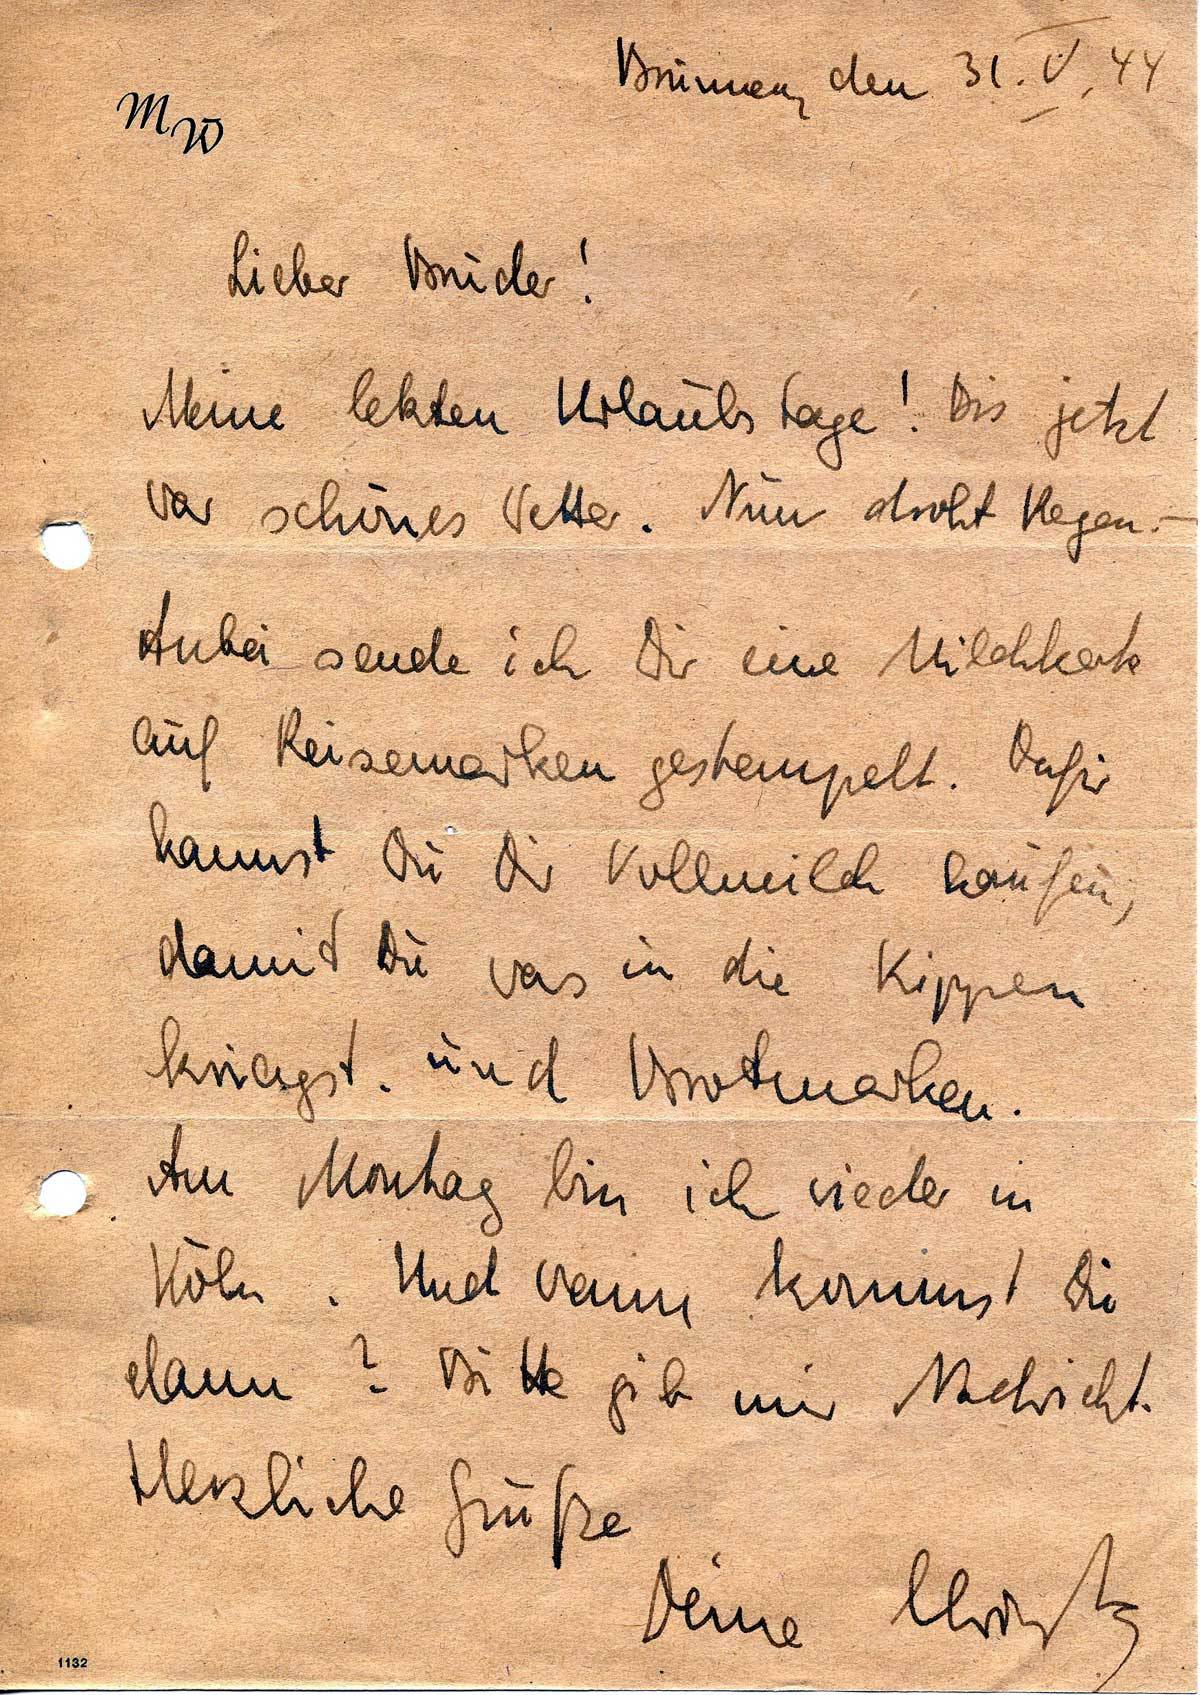 Brünnen, den 31. V. 44
MW
Lieber Bruder!
Meine letzten Urlaubstage! Bis jetzt
war schönes Wetter. Nun droht Regen. –
Anbei sende ich Dir eine Milchkarte
auf Reisemarken gestempelt. Dafür
kannst Du Dir Vollmilch kaufen,
damit Du was in die Rippen
kriegst. und Brotmarken.
Am Montag bin ich wieder in
Köln. Und wann kommst Du
dann? Bitte gib mir Nachricht.
Herzliche Grüße
Deine
1132